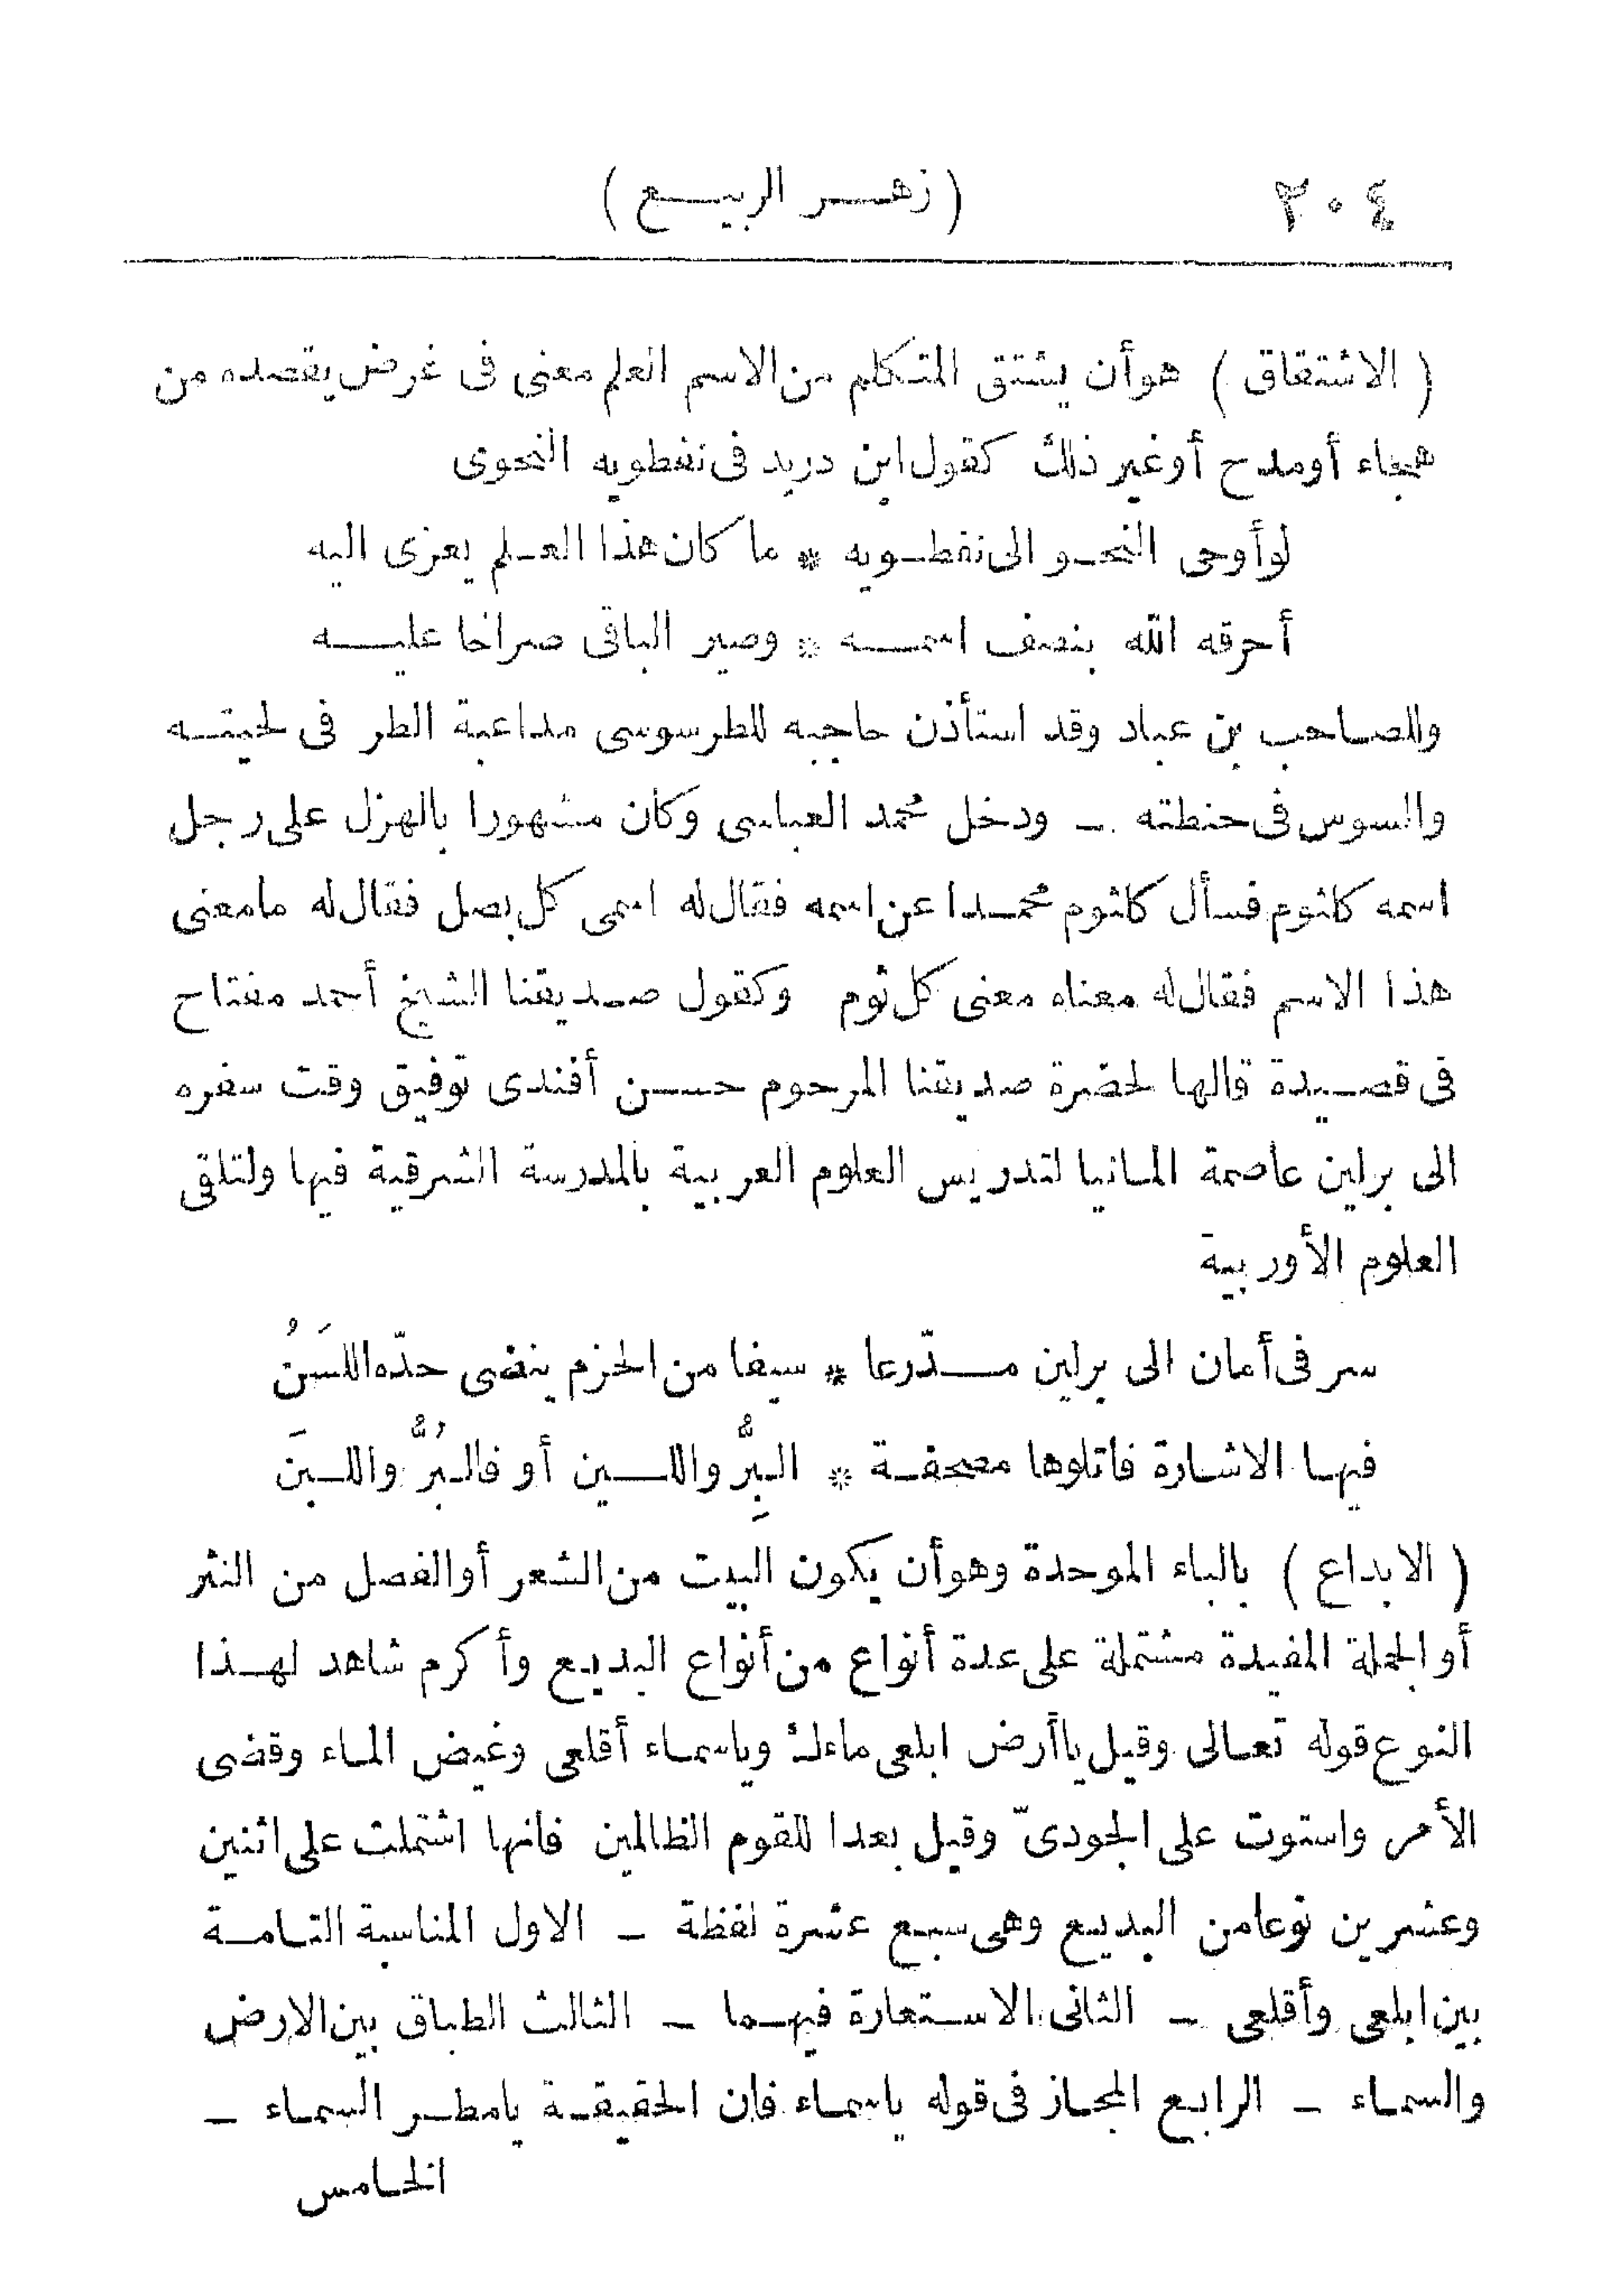 ٢٠٤ (زهر الربيع)
(الاشتقاق) هو أن يشتق المتكلم من الاسم العلم معنى فى غرض يقصده من
هجاء أو مدح أو غير ذلك كقول ابن دريد فى نفطويه النحوى
لو أوحى النحو الى نفطويه * ما كان هذا العلم يعزى اليه
أحرقه الله بنصف اسمه * وصير الباقى صراخا عليه
وللصاحب بن عباد وقد استأذن حاجبه للطرسوسى مداعبة الطر فى لحيته
والسوس فى حنطته – ودخل محمد العباسى وكان مشهورا بالهزل على رجل
اسمه كلثوم فسأل كلثوم محمدا عن اسمه فقال له اسمى كل بصل فقال له ما معنى
هذا الاسم فقال له معناه معنى كل ثوم وكقول صديقنا الشيخ أحمد مفتاح
فى قصيدة قالها لحضرة صديقنا المرحوم حسن أفندى توفيق وقت سفره
الى برلين عاصمة المانيا لتدريس العلوم العربية بالمدرسة الشرقية فيها ولتلقى
العلوم الأوربية
سر فى أمان الى برلين مدّرعا * سيفا من الحزم ينضى حدّه اللسَنُ
فيها الاشارة فاتلوها مصحفة * البِرُّ واللين أو فالبُرُّ واللبنَ
(الابداع) بالباء الموحدة وهو أن يكون البيت من الشعر أو الفصل من النثر
أو الجملة المفيدة مشتملة على عدة أنواع من أنواع البديع وأكرم شاهد لهذا
النوع قوله تعالى وقيل ياأرض ابلعى ماءك وياسماء أقلعى وغيض الماء وقضى
الأمر واستوت على الجودىّ وقيل بعدا للقوم الظالمين فانها اشتملت على اثنين
وعشرين نوعا من البديع وهى سبع عشرة لفظة – الاول المناسبة التامة
بين ابلعى وأقلعى – الثانى الاستعارة فيهما – الثالث الطباق بين الارض
والسماء – الرابع المجاز فى قوله ياسماء فان الحقيقة يامطر السماء –
الخامس